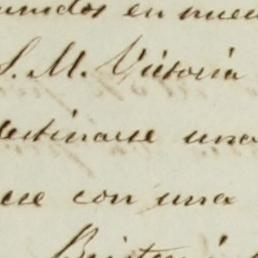 unidos en nue
S. M. Victoria
destinarse una
ese con una